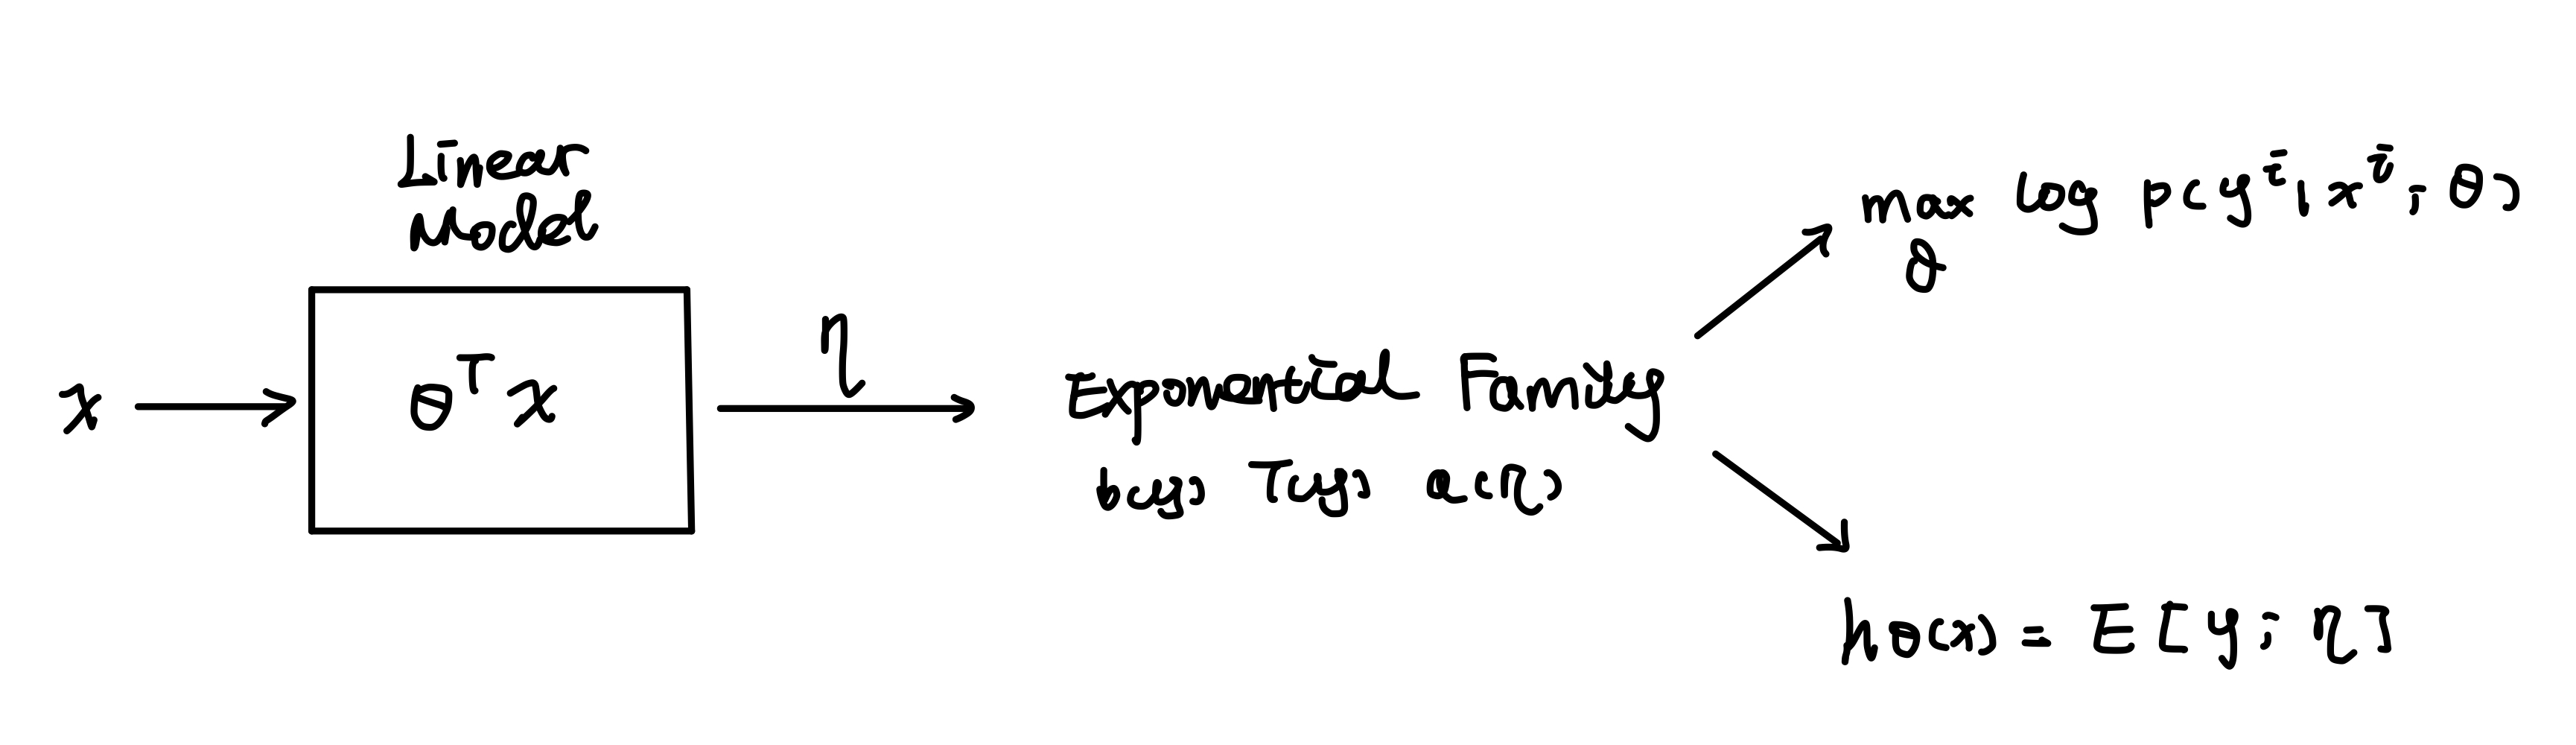 Linear
Model
x
θᵀx
η
Exponential Family
b(y) T(y) a(η)
max log p(yⁱ|xⁱ; θ)
θ
hθ(x) = E[y; η]